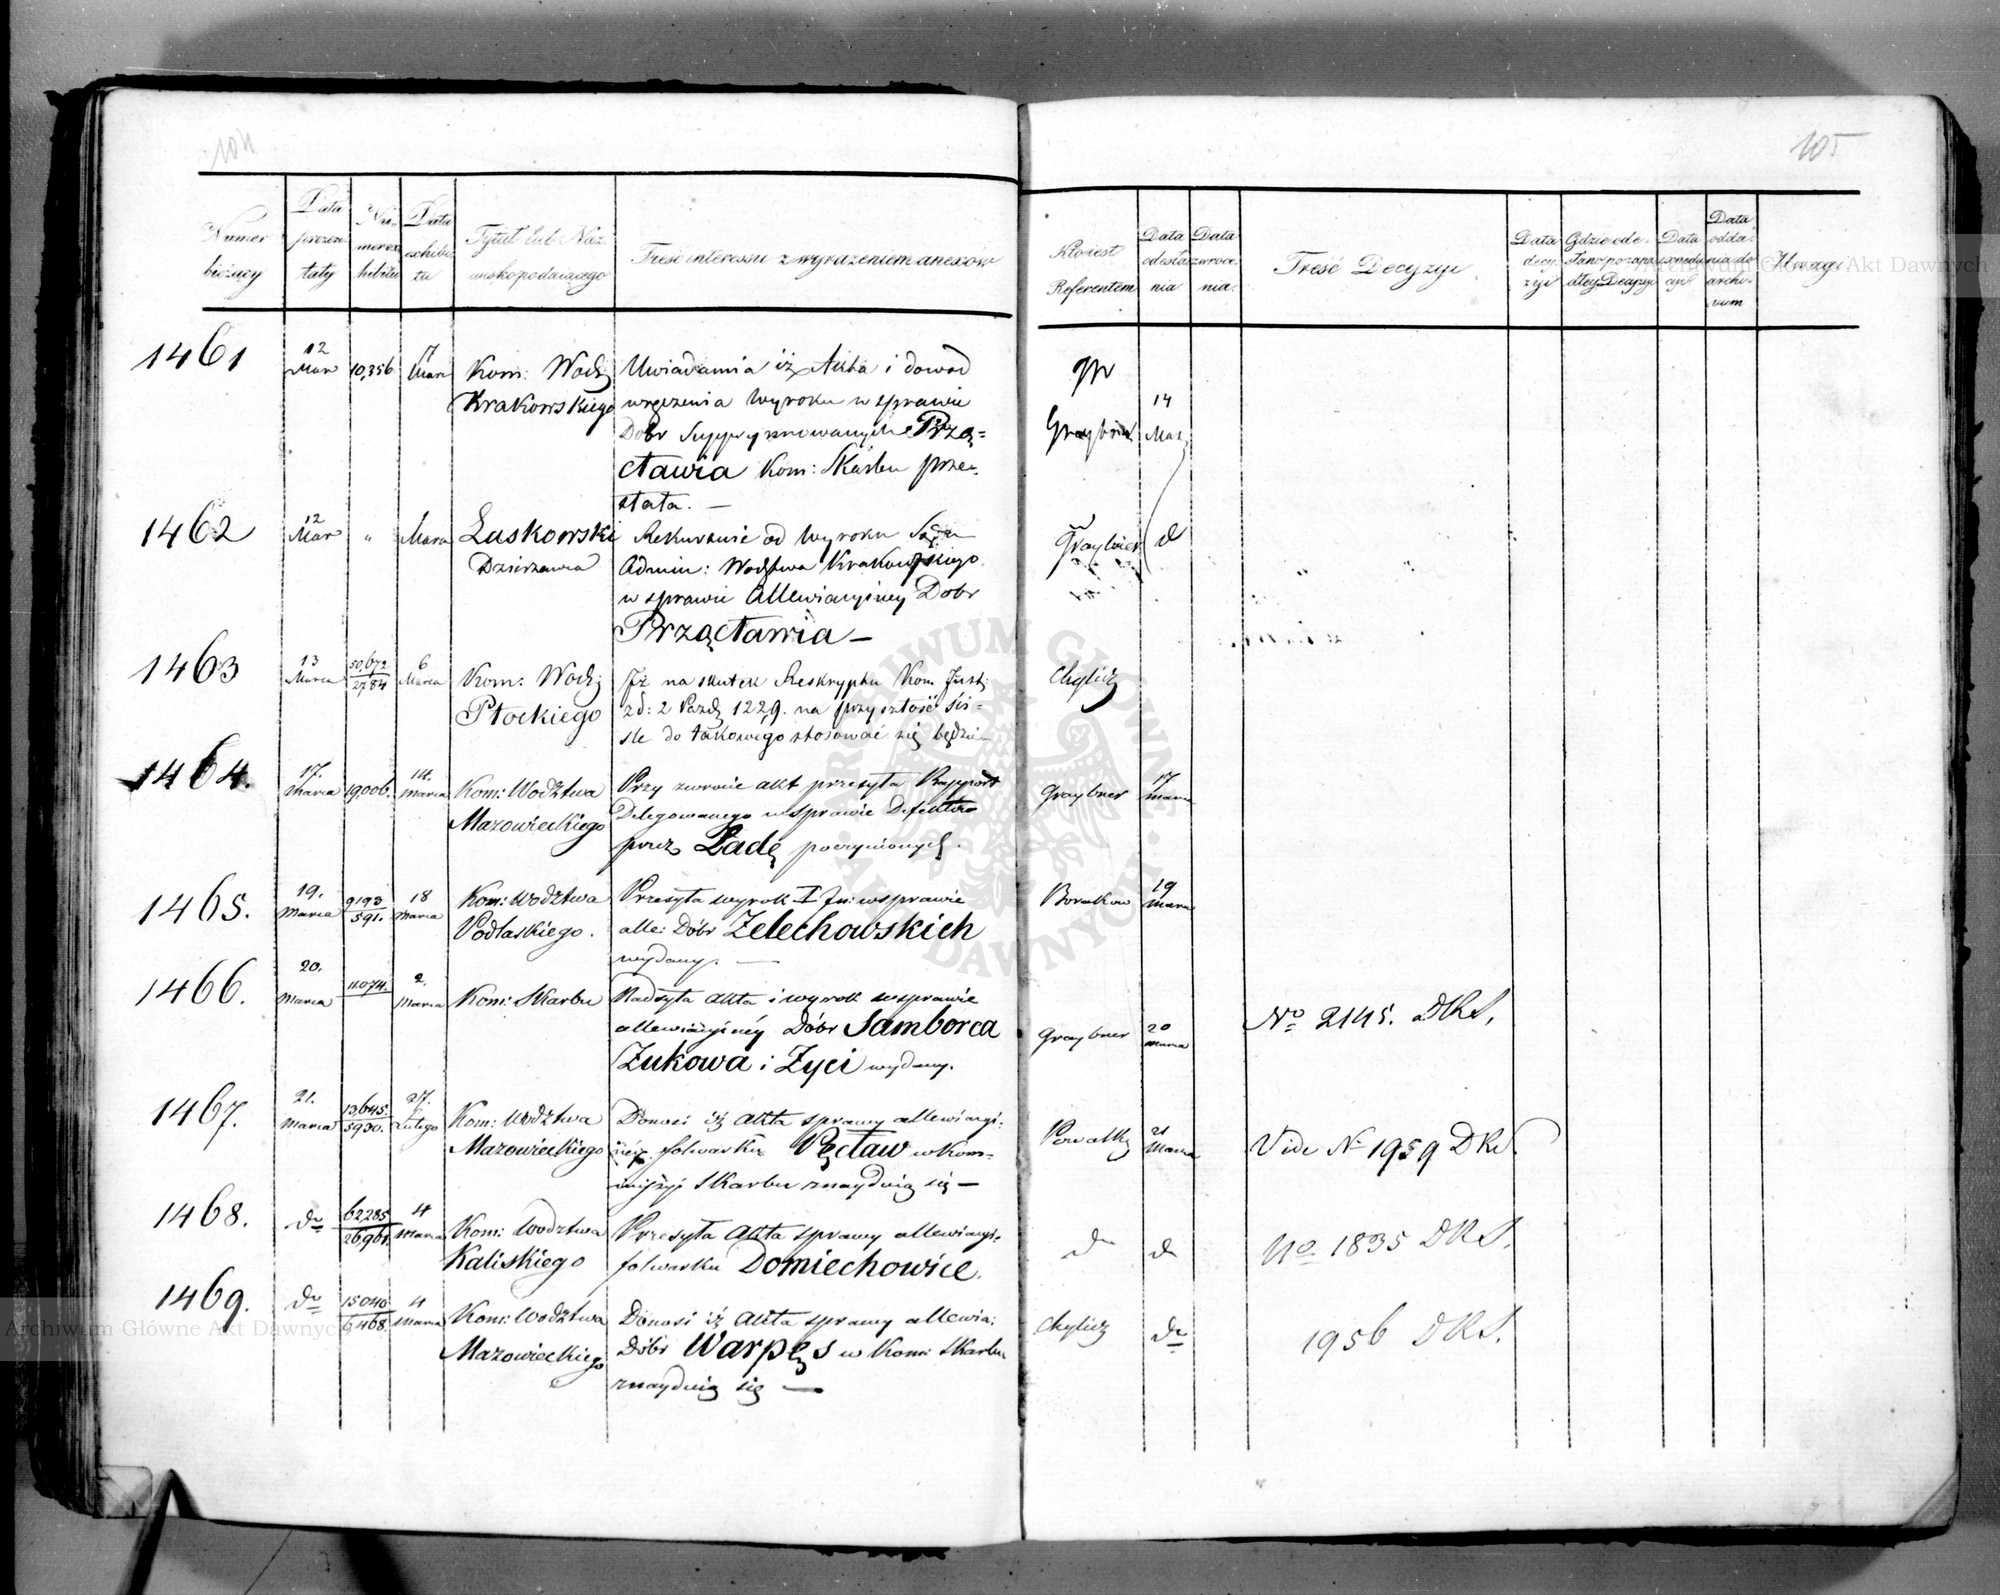 104
105
Numer bieżący
Data prezen taty
Nu- mer ex hibitu
Data exhibi tu
Tytuł lub Naz- wisko podaiącego
Treść interessu z wyrażeniem anexów
Kto iest Referentem
Data odesła nia
Data zwroce- nia.
Treść Decyzyi.
Data decy zyi
Gdzie ode- słano po zapa dłey Decyzyi
Data expedy cyi
Data odda- nia do archi- vum
Uwagi
1461
12 Mar
10,356
7 Marc
Kom: Wodz
Krakowskiego
Uwiadamia iż Akta i dowod
wręczenia wyroku w sprawie
Dobr Suppry mowanych Przę=
cławia Kom: Skarbu prze-
słała. —
14 Mar
1462
12 Mar
"
Marca
Laskowski
Dzierzawca
Rekurs od wyroku Sądu
Admin: Wodztwa Krakowskiego
w sprawie allewiacyiney Dobr
Przecławia —
Graybner
d
1463
13 Marca
50,672
2784
6 Marca
Kom: Wodz
Płockiego
Iż na skutek Reskryptu Kom.
zd: 2 Pazdz 1229. na przyszłość ści-
śle do takowego stosować się będzie—
Chylicz
1464.
17. Marca
19,006.
14. Marca
Kom: Wodztwa
Mazowieckiego
Przy zwrocie akt przesyła Rapport
Delegowanego w sprawie Defektów
przez Ładę poczynionych.
Graybner
17 Marca
1465.
19. Marca
9193
591.
18 Marca
Kom: Wodztwa
Podlaskiego.
Przesyła wyrok I In: w sprawie
alle: Dóbr Zelechowskich
wydany. —
19 Marca
1466.
20. Marca
11.074.
2. Marca
Kom: Skarbu
Nadsyła akta i wyrok w sprawie
allewiacyinéy Dóbr Samborca
Zukowa i Zyci wydany.
Graybner
20 Marca
No 2145. DKS.
1467.
21. Marca
13,645.
5930.
27. Lutego
Kom: Wodztwa
Mazowieckiego
Donosi iż akta sprawy allewiacyi-
néy folwarku Pęcław w Kom-
missyi Skarbu znayduią się —
21 Marca
Vide No 1959 DKS.
1468.
do
62285
26961.
4 Marca
Kom: Wodztwa
Kaliskiego
Przesyła akta sprawy allewiacyi-
folwarku Domiechowice.
do
do
No 1835 DKS.
1469.
do
15040
6468.
4 Marca
Kom: Wodztwa
Mazowieckiego
Donosi iż akta sprawy allewia:
dóbr Warpęs w Kom: Skarbu
znayduią się —
Chylicz
do
1956 DKS.
ARCHIWUM GŁÓWNE AKT DAWNYCH
Archiwum Główne Akt Dawnych
Archiwum Główne Akt Dawnych